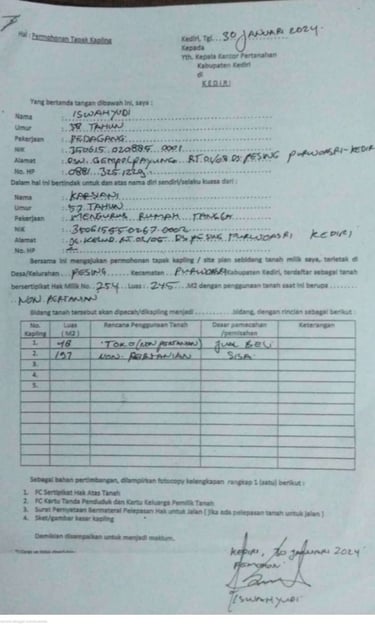 Hal : Permohonan Tapak Kapling
Kediri, Tgl... 30 JANUARI 2024.
Kepada
Yth. Kepala Kantor Pertanahan
Kabupaten Kediri
di
KEDIRI
Yang bertanda tangan dibawah ini, saya :
Nama : ISWAHYUDI
Umur : 38 TAHUN
Pekerjaan : PEDAGANG
NIK : 350615.020885.0001
Alamat : DSN. GEMPOLPAYUNG. RT.01/08 DS.PESING PURWOASRI-KEDIRI
No. HP : 0881.325.1229
Dalam hal ini bertindak untuk dan atas nama diri sendiri/selaku kuasa dari :
Nama : KARSIANI
Umur : 57 TAHUN
Pekerjaan : MENGURUS RUMAH TANGGA
NIK : 3506155502670002
Alamat : RT.01/05 DS PESING PURWOASRI KEDIRI
No. HP : -
Bersama ini mengajukan permohonan tapak kapling / site plan sebidang tanah milik saya, terletak di
Desa/Kelurahan...PESING......Kecamatan...PURWOASRI Kabupaten Kediri, terdaftar sebagai tanah
bersertipikat Hak Milik No.254..Luas:.245...M2 dengan penggunaan tanah saat ini berupa
NON PERTANIAN
Bidang tanah tersebut akan dipecah/dikapling menjadi .......... bidang, dengan rincian sebagai berikut :
No. Kapling Luas (M2) Rencana Penggunaan Tanah Dasar pemecahan /pemisahan Keterangan
1. 48 TOKO (NON PERTANIAN) JUAL BELI
2. 197 NON PERTANIAN SISA
3.
4.
5.
Sebagai bahan pertimbangan, dilampirkan fotocopy kelengkapan rangkap 1 (satu) berikut :
1. FC Sertipikat Hak Atas Tanah
2. FC Kartu Tanda Penduduk dan Kartu Keluarga Pemilik Tanah
3. Surat Pernyataan Bermaterai Pelepasan Hak untuk Jalan ( jika ada pelepasan tanah untuk jalan )
4. Sket/gambar kasar kapling
Demikian disampaikan untuk menjadi maklum.
KEDIRI, 30 JANUARI 2024
PEMOHON
ISWAHYUDI